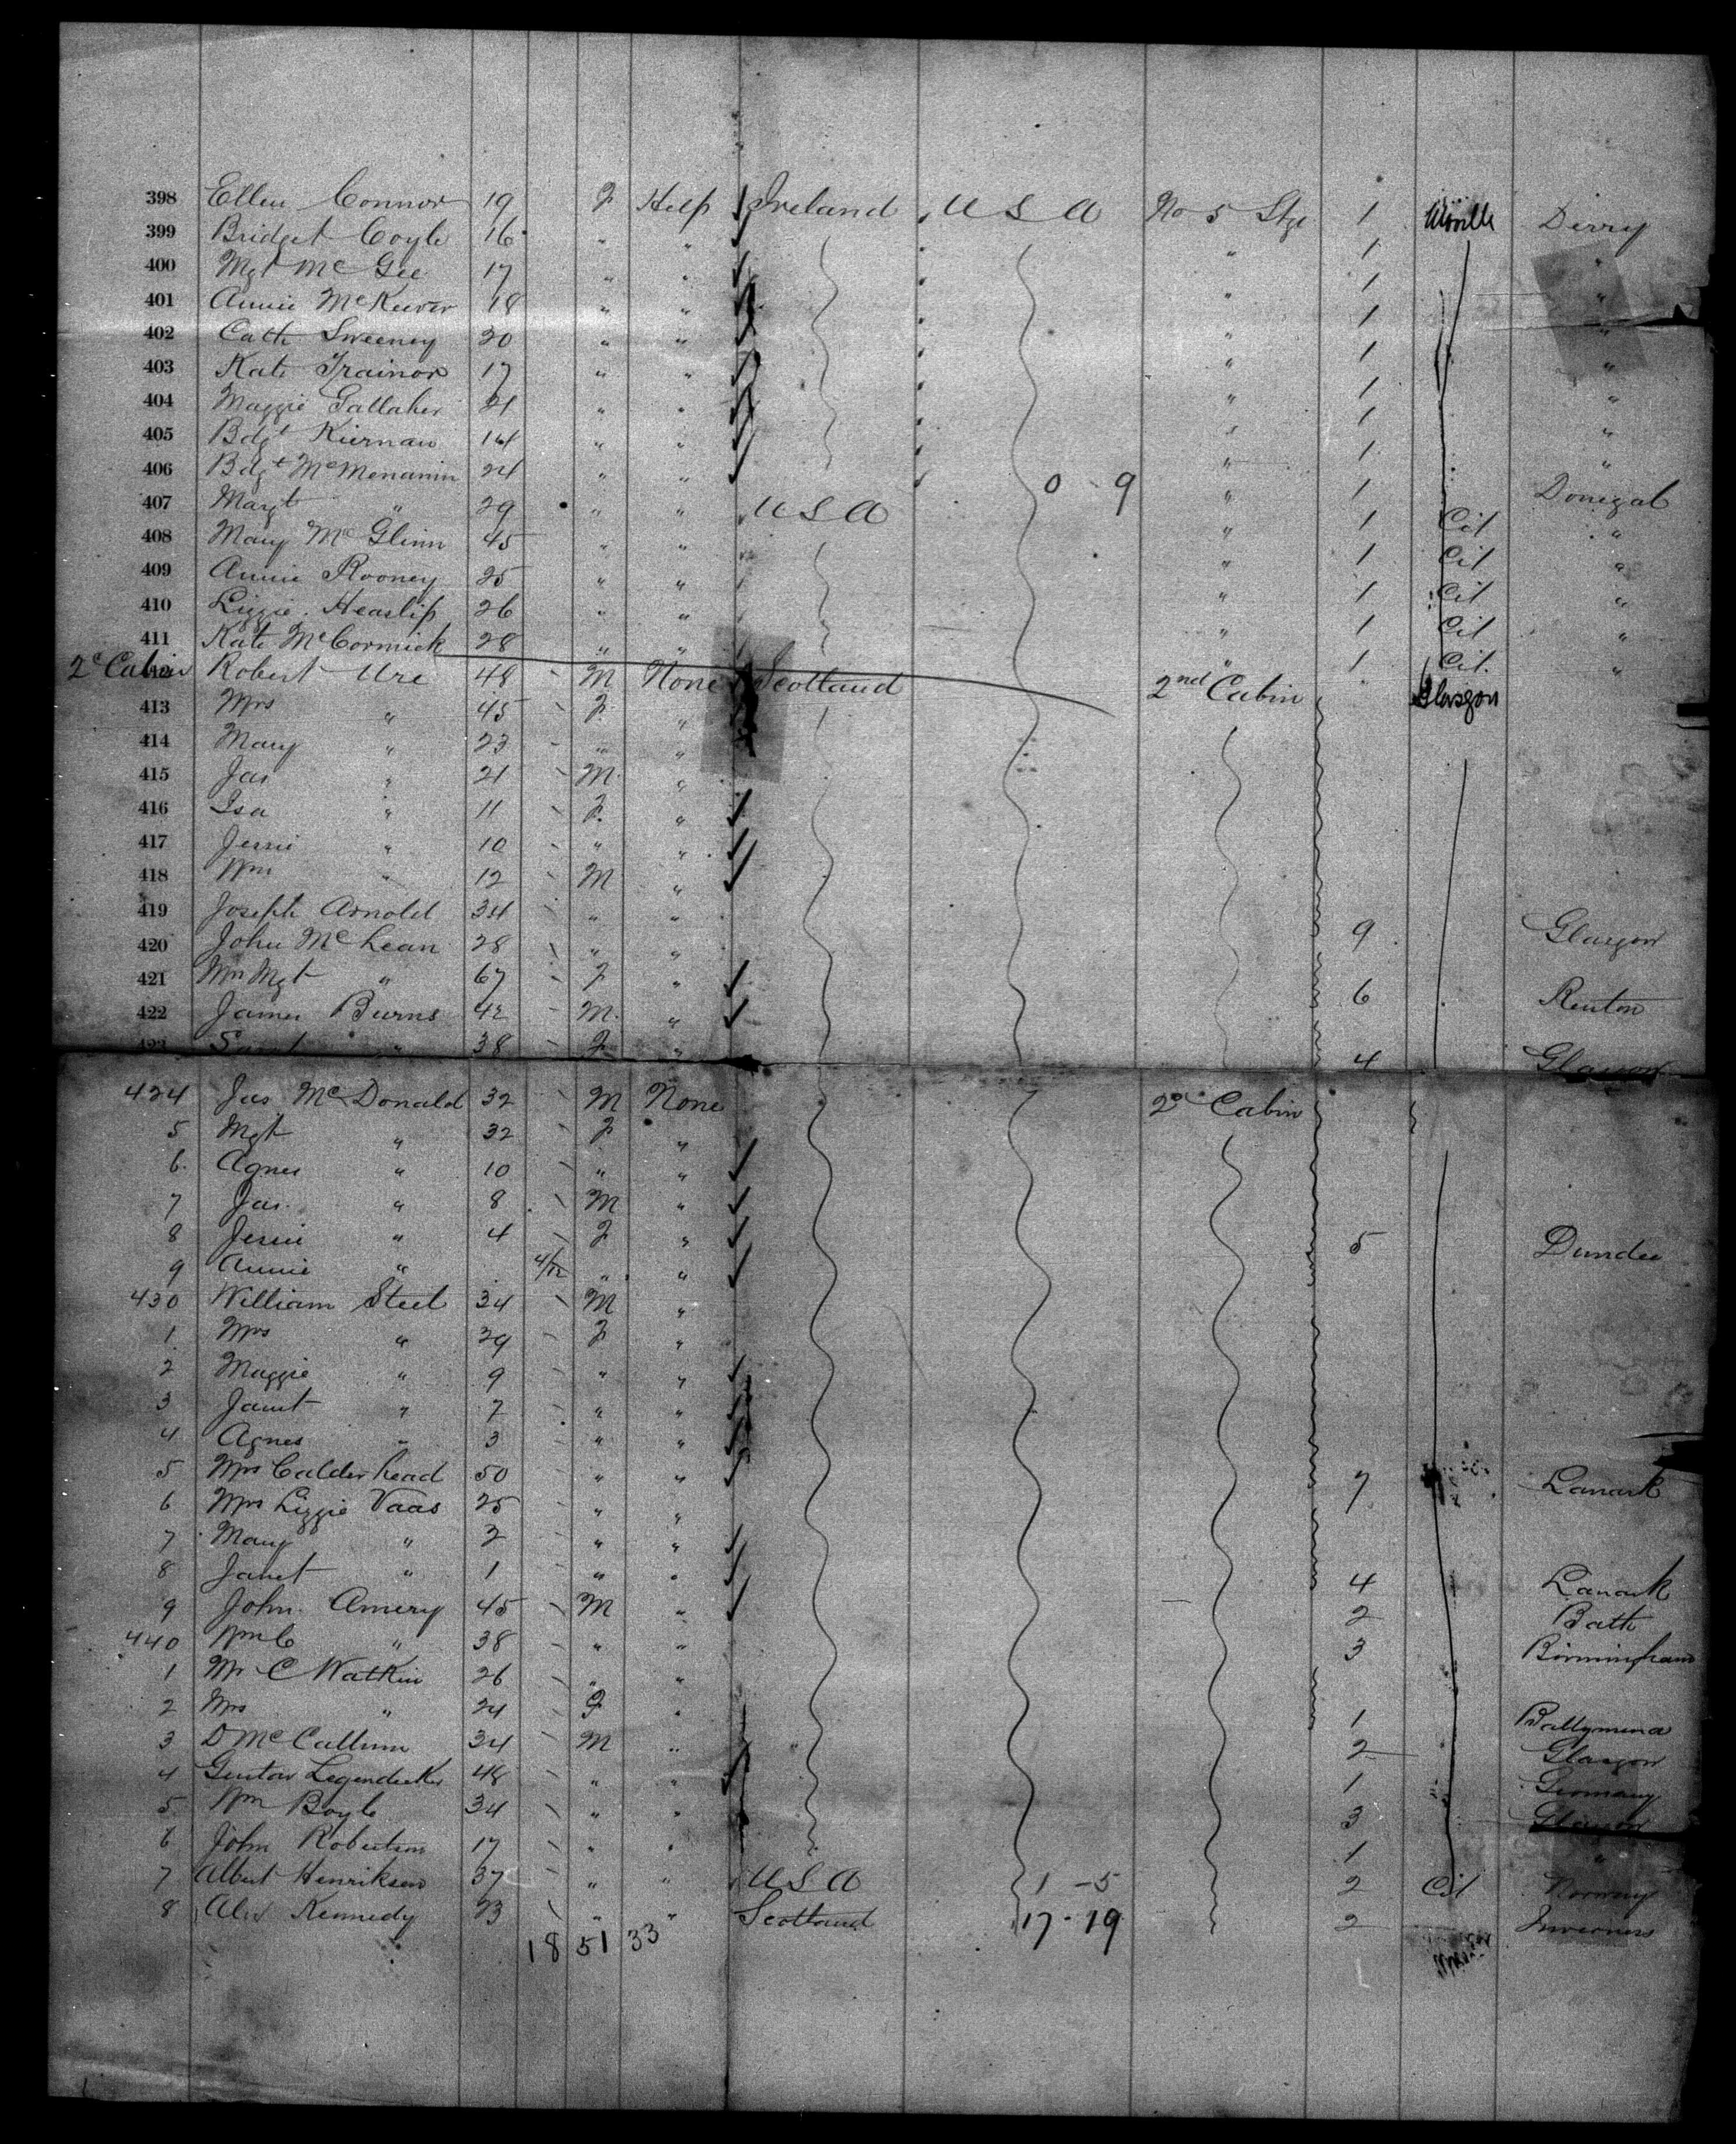 398 Ellen Connor 19 F Help Ireland U S A No 5 Stge 1 Derry
399 Bridget Coyle 16 " " " 1 "
400 Mgt McGee 17 " " " 1 "
401 Annie McKeever 18 " " " 1 "
402 Cath Sweeney 20 " " " 1 "
403 Kate Trainor 17 " " " 1 "
404 Maggie Gallaher 21 " " " 1 "
405 Bdgt Kiernan 14 " " " 1 "
406 Bdgt McMenamin 24 " " " 0 - 9 1 Donegal
407 Margt " 29 " " U S A " 1 Cit "
408 Mary McGlinn 45 " " " 1 Cit "
409 Annie Rooney 25 " " " 1 Cit "
410 Lizzie Heaslip 26 " " " 1 Cit "
411 Kate McCormick 28 " " " 1 Cit. "
2d Cabin Robert Ure 48 M None Scotland 2nd Cabin Glasgow
413 Mrs " 45 F "
414 Mary " 23 " "
415 Jas " 21 M "
416 Isa " 11 F "
417 Jessie " 10 " "
418 Wm " 12 M "
419 Joseph Arnold 34 " " 9 Glasgow
420 John McLean 28 " "
421 Mrs Mgt " 67 F " 6 Renton
422 James Burns 42 M "
423 Sarah " 38 F " 4 Glasgow
424 Jas McDonald 32 M None 2d Cabin
5 Mgt " 32 F "
6 Agnes " 10 " "
7 Jas. " 8 M "
8 Jessie " 4 F " 5 Dundee
9 Annie " 4/12 " "
430 William Steel 34 M "
1 Mrs " 29 F "
2 Maggie " 9 " "
3 Janet " 7 " "
4 Agnes " 3 " "
5 Mrs Calderhead 50 " " 7 Lanark
6 Mrs Lizzie Vaas 25 " "
7 Mary " 2 " "
8 Janet " 1 " " 4 Lanark
9 John Amery 45 M " 2 Bath
440 Wm C " 38 " " 3 Birmingham
1 Mr C Watkin 26 " "
2 Mrs " 24 F " 1 Ballymena
3 D McCallum 34 M " 2 Glasgow
4 Gustav Legendecker 48 " " 1 Germany
5 Wm Boyle 34 " " 3 Glasgow
6 John Robertson 17 " " 1 "
7 Albert Henriksen 37 " " U S A 1 - 5 2 Cit Norway
8 Alex Kennedy 23 " " Scotland 17 - 19 2 Inverness
18 51 33